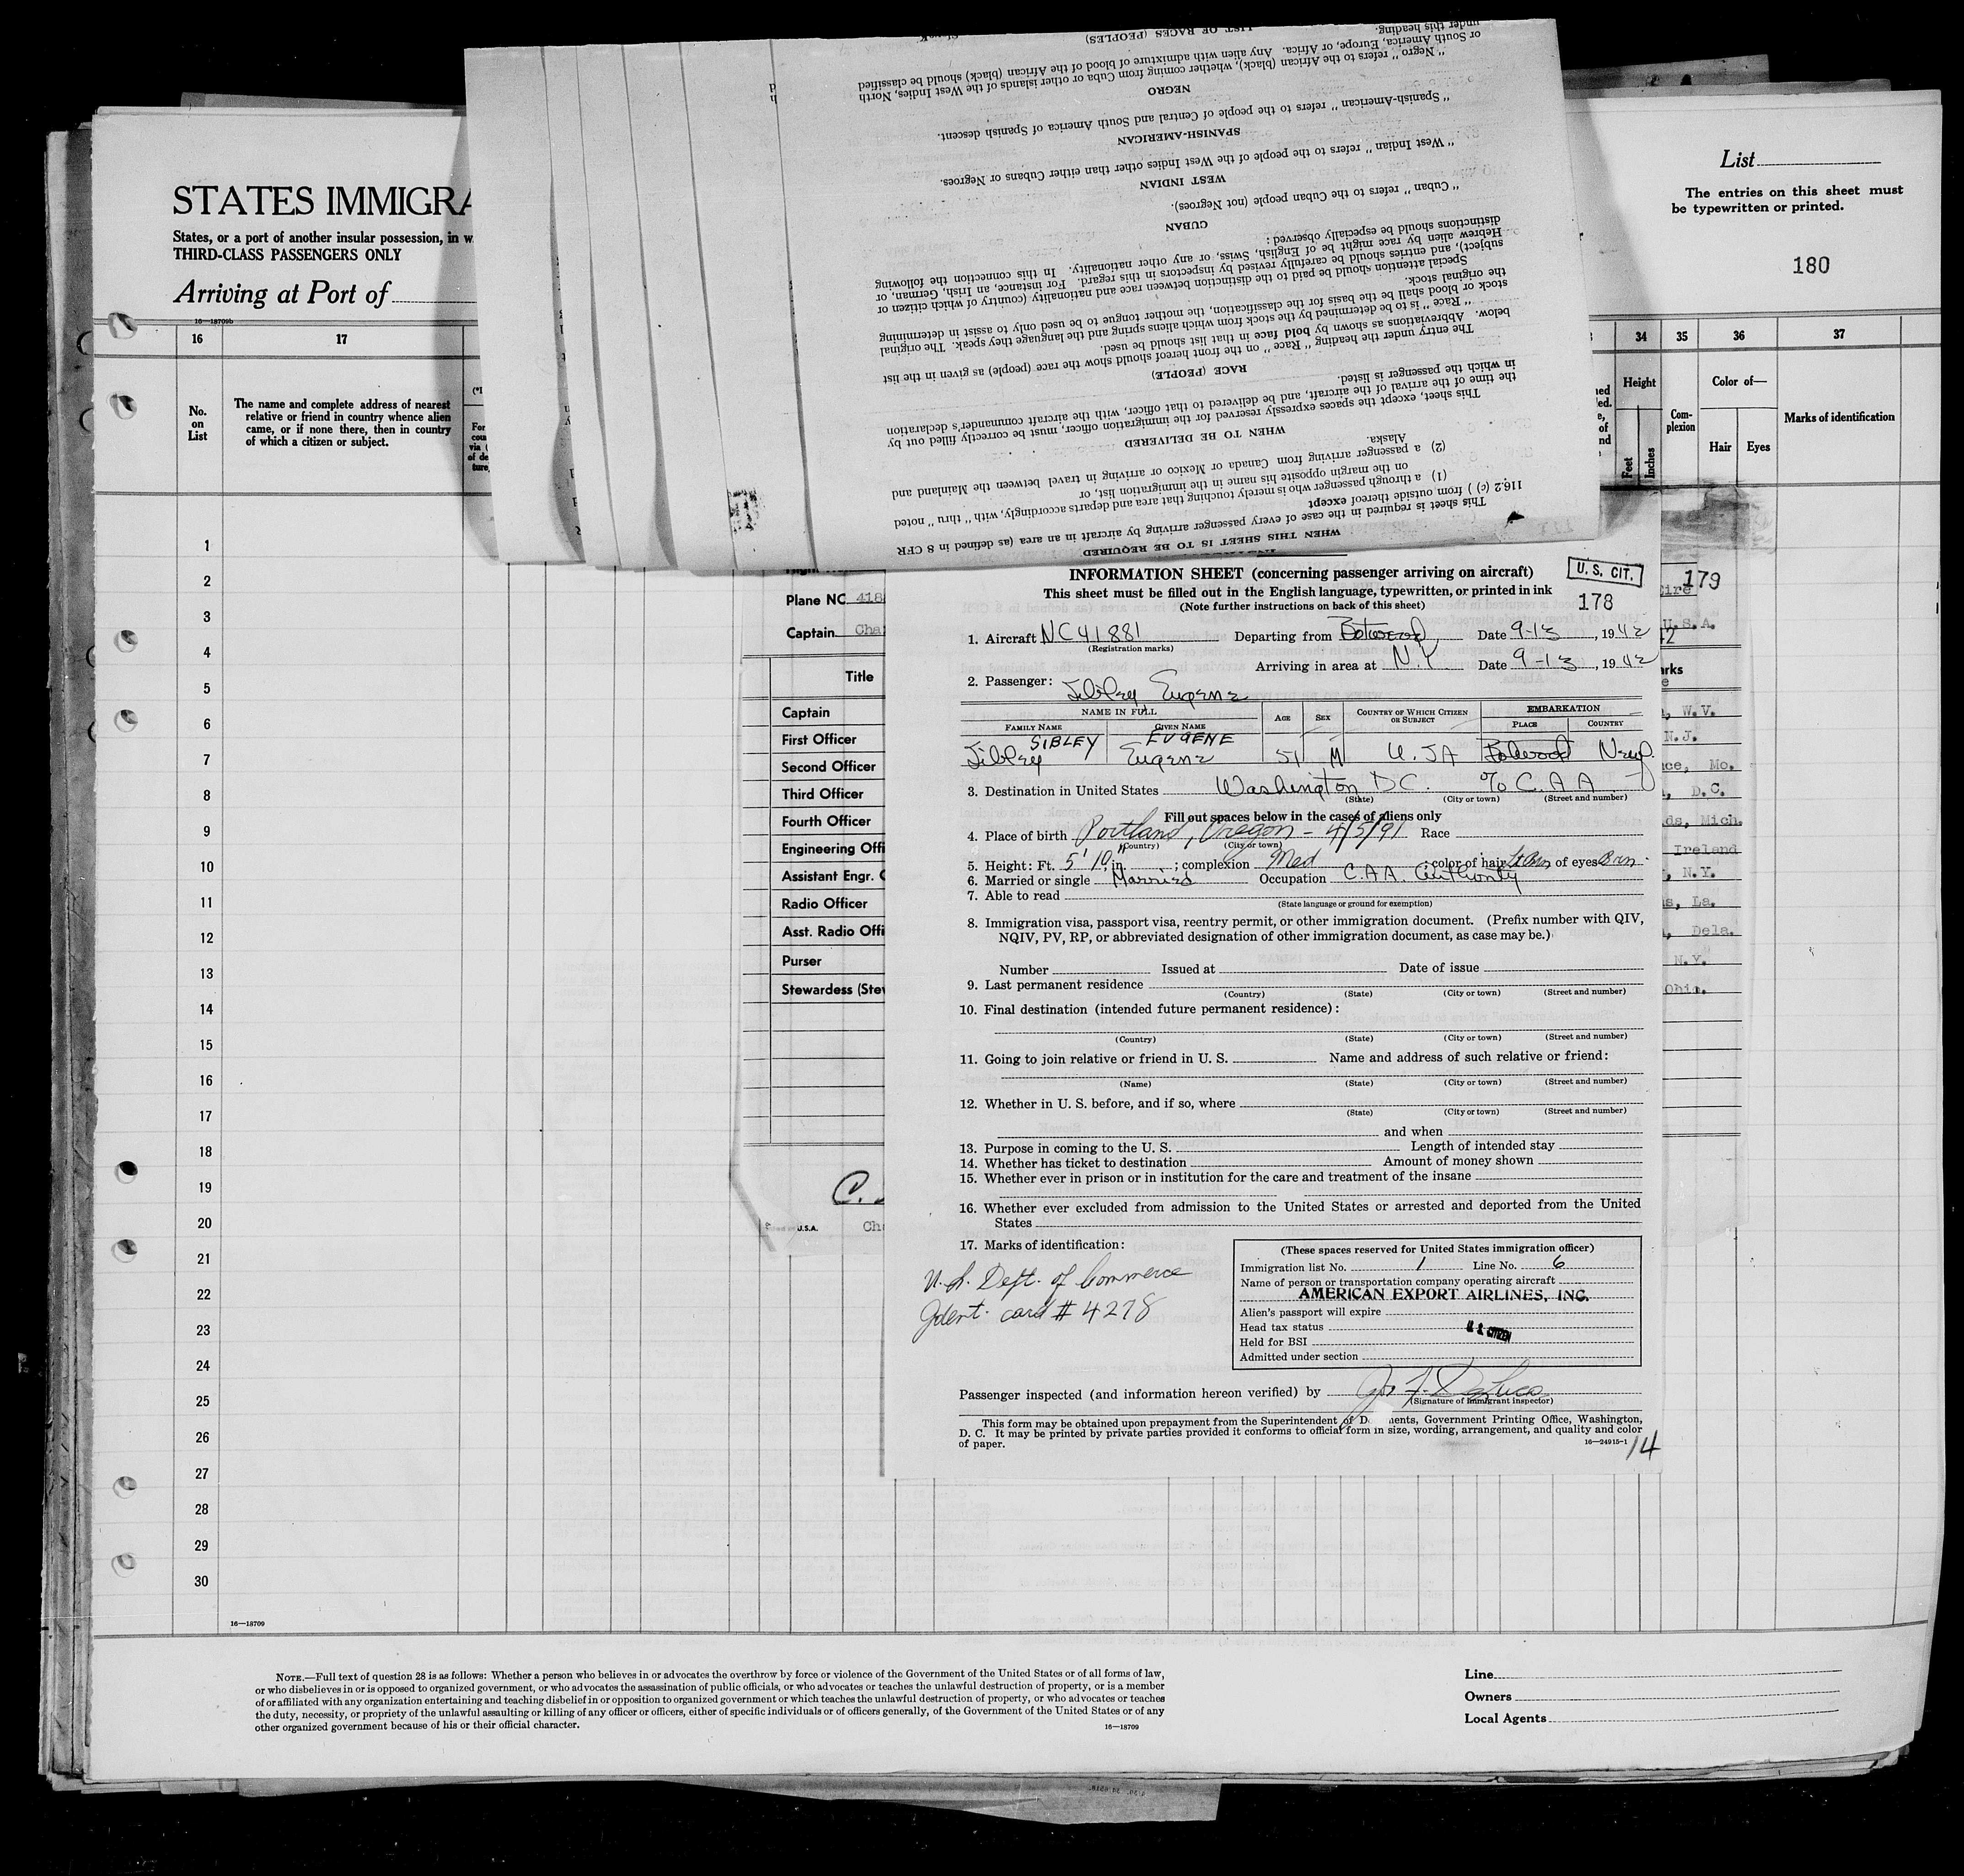 under this heading.
LIST OF RACES (PEOPLES)
or South America, Europe, or Africa. Any alien with admixture of blood of the African (black) should be classified
" Negro " refers to the African (black), whether coming from Cuba or other islands of the West Indies, North
NEGRO
" Spanish-American " refers to the people of Central and South America of Spanish descent.
SPANISH-AMERICAN
" West Indian " refers to the people of the West Indies other than either Cubans or Negroes.
WEST INDIAN
" Cuban " refers to the Cuban people (not Negroes).
CUBAN
distinctions should be especially observed:
Hebrew alien by race might be of English, Swiss, or any other nationality. In this connection the following
subject), and entries should be carefully revised by inspectors in this regard. For instance, an Irish, German, or
Special attention should be paid to the distinction between race and nationality (country of which citizen or
the original stock.
stock or blood shall be the basis for the classification, the mother tongue to be used only to assist in determining
" Race " is to be determined by the stock from which aliens spring and the language they speak. The original
below. Abbreviations as shown by bold face in that list should be used.
The entry under the heading " Race " on the front hereof should show the race (people) as given in the list
RACE (PEOPLE)
in which the passenger is listed.
the time of the arrival of the aircraft, and be delivered to that officer, with the aircraft commander's declaration
This sheet, except the spaces expressly reserved for the immigration officer, must be correctly filled out by
WHEN TO BE DELIVERED
Alaska.
(2) a passenger arriving from Canada or Mexico or arriving in travel between the Mainland and
on the margin opposite his name in the immigration list, or
(1) a through passenger who is merely touching that area and departs accordingly, with " thru " noted
116.2 (c) ) from outside thereof except
This sheet is required in the case of every passenger arriving by aircraft in an area (as defined in 8 CFR
WHEN THIS SHEET IS TO BE REQUIRED
STATES IMMIGRA
States, or a port of another insular possession, in w
THIRD-CLASS PASSENGERS ONLY
Arriving at Port of
16—18709b
List
The entries on this sheet must
be typewritten or printed.
180
16 17 34 35 36 37
No. on List
The name and complete address of nearest
relative or friend in country whence alien
came, or if none there, then in country
of which a citizen or subject.
Height
Feet Inches
Com-
plexion
Color of—
Hair Eyes
Marks of identification
1
2
3
4
5
6
7
8
9
10
11
12
13
14
15
16
17
18
19
20
21
22
23
24
25
26
27
28
29
30
16—18709
Plane NC 418
Captain Cha
Title
Captain
First Officer
Second Officer
Third Officer
Fourth Officer
Engineering Offi
Assistant Engr. O
Radio Officer
Asst. Radio Offi
Purser
Stewardess (Stew
U.S.A. Cha
179
U.S.A.
42
arks
, W.V.
N.J.
ce, Mo.
, D.C.
ds, Mich.
Ireland
, N.Y.
s, La.
, Dela.
N.Y.
Ohio.
INFORMATION SHEET (concerning passenger arriving on aircraft)
U. S. CIT.
This sheet must be filled out in the English language, typewritten, or printed in ink
(Note further instructions on back of this sheet)
178
1. Aircraft NC41881 Departing from Botwood, Date 9-13, 1942
(Registration marks)
Arriving in area at N.Y Date 9-13, 1942
2. Passenger: Sibley Eugene
NAME IN FULL AGE SEX COUNTRY OF WHICH CITIZEN OR SUBJECT EMBARKATION
FAMILY NAME GIVEN NAME PLACE COUNTRY
SIBLEY EUGENE
Sibley Eugene 51 M U.SA Botwood Newf.
3. Destination in United States Washington DC. % C.A A
(State) (City or town) (Street and number)
Fill out spaces below in the cases of aliens only
4. Place of birth Portland, Oregon - 4/5/91 Race
(Country) (City or town)
5. Height: Ft. 5' 10" in. ; complexion Med ; color of hair Lt Brn of eyes Brn
6. Married or single Married Occupation C.A A. Authority
7. Able to read
(State language or ground for exemption)
8. Immigration visa, passport visa, reentry permit, or other immigration document. (Prefix number with QIV,
NQIV, PV, RP, or abbreviated designation of other immigration document, as case may be.)
Number Issued at Date of issue
9. Last permanent residence
(Country) (State) (City or town) (Street and number)
10. Final destination (intended future permanent residence):
(Country) (State) (City or town) (Street and number)
11. Going to join relative or friend in U. S. Name and address of such relative or friend:
(Name) (State) (City or town) (Street and number)
12. Whether in U. S. before, and if so, where
(State) (City or town) (Street and number)
and when
13. Purpose in coming to the U. S. Length of intended stay
14. Whether has ticket to destination Amount of money shown
15. Whether ever in prison or in institution for the care and treatment of the insane
16. Whether ever excluded from admission to the United States or arrested and deported from the United
States
17. Marks of identification:
U.S. Dept. of Commerce
Ident. card # 4278
(These spaces reserved for United States immigration officer)
Immigration list No. 1 Line No. 6
Name of person or transportation company operating aircraft
AMERICAN EXPORT AIRLINES, INC.
Alien's passport will expire
Head tax status
U S CITIZEN
Held for BSI
Admitted under section
Passenger inspected (and information hereon verified) by
(Signature of immigrant inspector)
This form may be obtained upon prepayment from the Superintendent of Do ments, Government Printing Office, Washington,
D. C. It may be printed by private parties provided it conforms to official form in size, wording, arrangement, and quality and color
of paper.
16—24915-1
14
NOTE.—Full text of question 28 is as follows: Whether a person who believes in or advocates the overthrow by force or violence of the Government of the United States or of all forms of law,
or who disbelieves in or is opposed to organized government, or who advocates the assassination of public officials, or who advocates or teaches the unlawful destruction of property, or is a member
of or affiliated with any organization entertaining and teaching disbelief in or opposition to organized government or which teaches the unlawful destruction of property, or who advocates or teaches
the duty, necessity, or propriety of the unlawful assaulting or killing of any officer or officers, either of specific individuals or of officers generally, of the Government of the United States or of any
other organized government because of his or their official character.
16—18709
Line
Owners
Local Agents